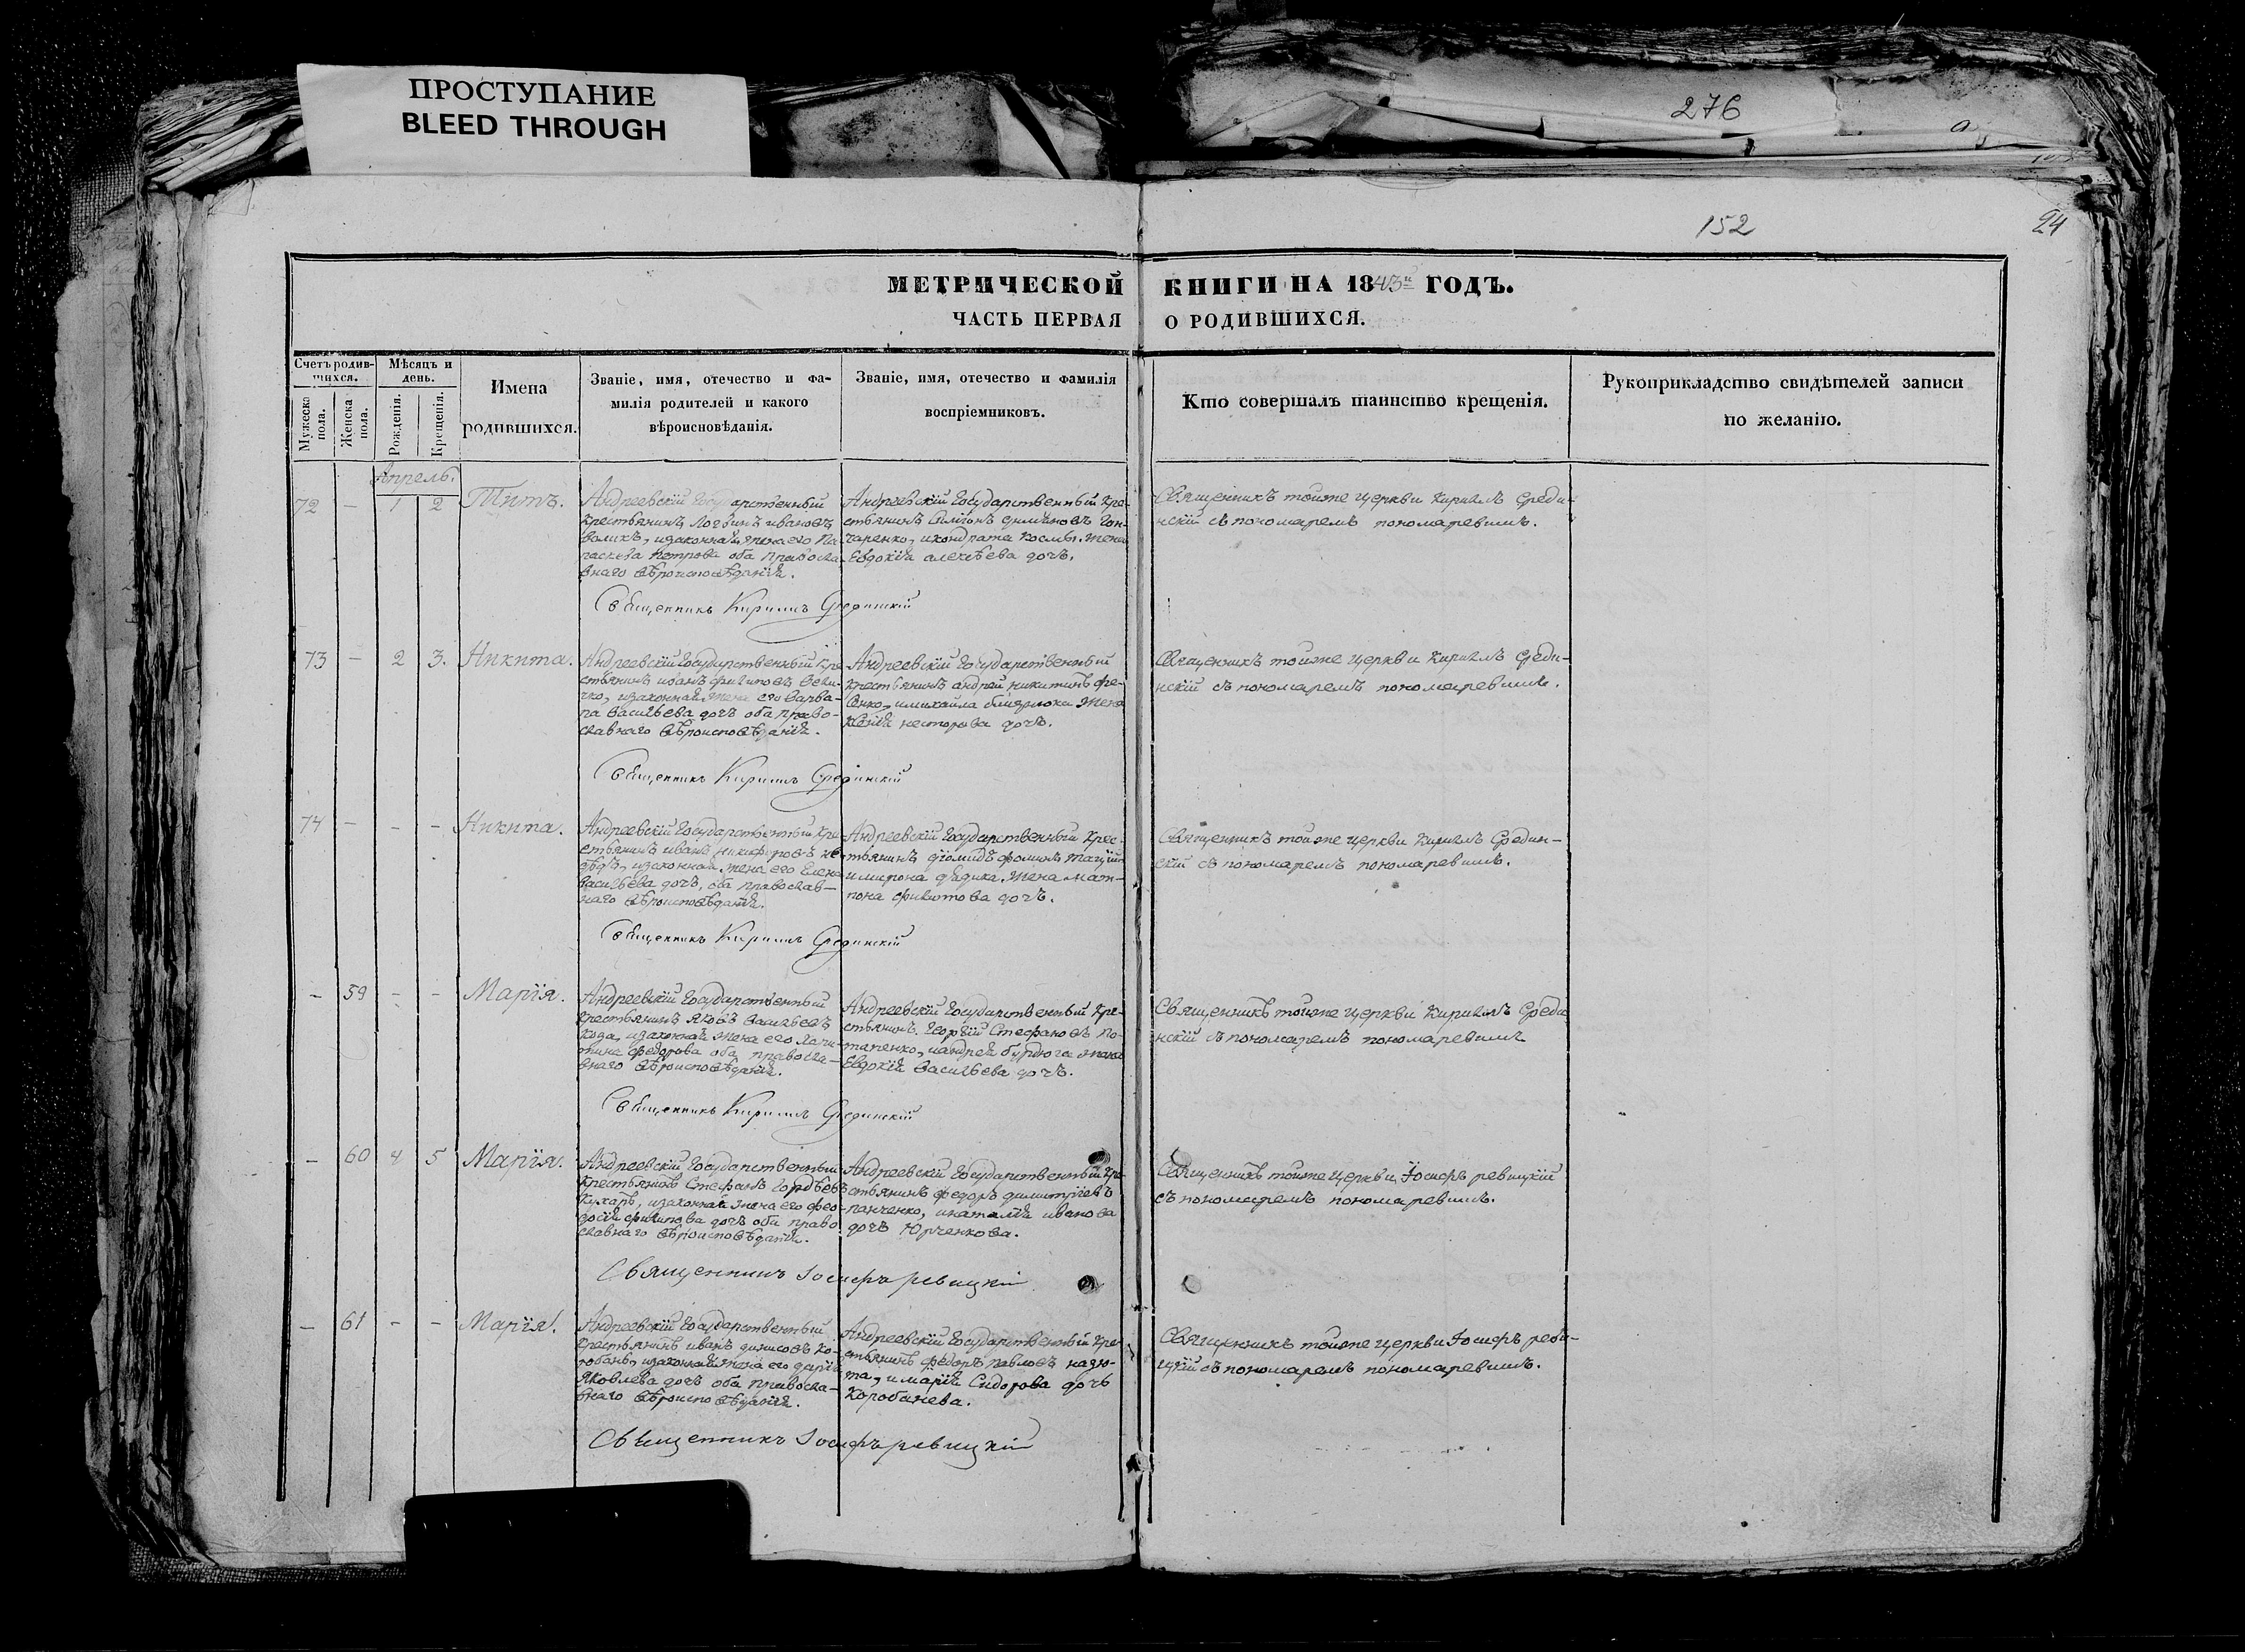 ПРОСТУПАНИЕ
BLEED THROUGH
276
152
24
МЕТРИЧЕСКОЙ КНИГИ НА 1843й ГОДЪ.
ЧАСТЬ ПЕРВАЯ О РОДИВШИХСЯ.
Счетъ родив-
шихся.
Мужеска
пола.
Женска
пола.
Мѣсяцъ и
день.
Рожденія.
Крещенія.
Имена
родившихся.
Званіе, имя, отечество и фа-
милія родителей и какого
вѣроисновѣданія.
Званіе, имя, отечество и фамилія
воспріемниковъ.
Кто совершалъ таинство крещенія.
Рукоприкладство свидѣтелей записи
по желанію.
Апрель.
72 — 1 2 Титъ.
Андреевскій Государственный
крестьянинъ Логвинъ ивановъ
законная жена его Па-
раскева Петрова оба правосла-
внаго вѣроисповѣданія.
Андреевскій Государственный кре-
стьянинъ Гон-
чаренко, икондрата Космы. жена
Евдокія алексѣева дочь.
Священникъ тойже церкви Кирилъ Среди-
нскій съ пономаремъ пономаревимъ.
Священникъ Кирилъ Срединскій
73 — 2 3. Никита.
Андреевскій Государственный кре
стьянинъ иванъ филиповъ Вели-
чко, изаконная жена его варва-
ра васильева дочь оба право-
славнаго вѣроисповѣданія.
Андреевскій Государственный
крестьянинъ андрей никитинъ
имихайла жена
нестерова дочь.
Священникъ тойже церкви Кирилъ Среди-
нскій съ пономаремъ пономаревимъ.
Священникъ Кирилъ Срединскій
74 — - - Никита.
Андреевскій Государственный кре
стьянинъ иванъ никифоровъ
изаконная жена его Елена
васильева дочь, оба православ-
наго вѣроисповѣданія.
Андреевскій Государственный крес-
тьянинъ фоминъ
имирона жена мат-
рона филипова дочь.
Священникъ тойже церкви Кирилъ Средин-
скій съ пономаремъ пономаревимъ.
Священникъ Кирилъ Срединскій
— 59 - - Марія.
Андреевскій Государственный
крестьянинъ яковъ васильевъ
изаконная жена его Хари-
тина федорова оба правосла-
внаго вѣроисповѣданія.
Андреевскій Государственный кре-
стьянинъ Георгій Стефановъ По-
тапенко, иандрея жена
Евдокія васильева дочь.
Священникъ тойже церкви Кирилъ Среди
нскій съ пономаремъ пономаревимъ
Священникъ Кирилъ Срединскій
— 60 4 5 Марія.
Андреевскій Государственный
крестьянинъ Стефанъ Гордѣевъ
Кухаръ, изаконная жена его фео-
досія филипова дочь оба право
славнаго вѣроисповѣданія.
Андреевскій Государственный кре
стьянинъ федоръ димитріевъ
панченко, инаталія иванова
дочь Юрченкова.
Священникъ тойже церкви Іосифъ ревицкій
съ пономаремъ пономаревимъ.
Священникъ Іосифъ ревицкій
— 61 - - Марія.
Андреевскій Государственный
крестьянинъ иванъ денисовъ Ко-
робань, изаконная жена его дарія
яковлева дочь оба правосла-
внаго вѣроисповѣданія.
Андреевскій Государственный кре-
стьянинъ федоръ павловъ
имарія Сидорова дочь
Коробанева.
Священникъ тойже церкви Іосифъ реви-
цкій съ пономаремъ пономаревимъ.
Священникъ Іосифъ ревицкій